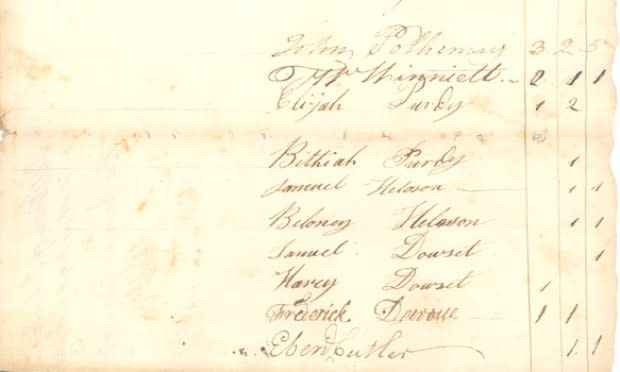 John Polhemus 3 2 5
Winniett 2 1 1
Elijah Purdy 1 2
Bithiah Purdy 1
Samuel Heloson 1 1
Beloney Heloson 1 1
Samuel Dowset 1
Harey Dowset 1
Frederick Devoue 1 1
Eben Cutler 1 1